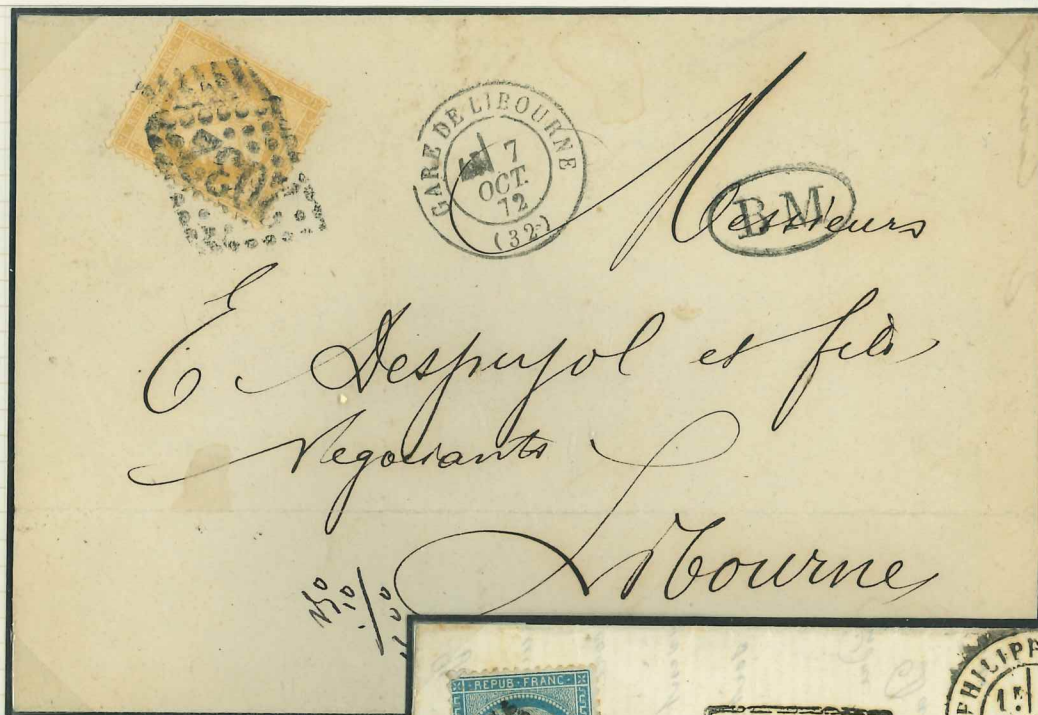 GARE DE LIBOURNE
7
OCT.
72
(32)
BM
Messieurs
E. Despujol et fils
Négociants
Libourne
250
10
REPUB · FRANC ·
PHILIPP
15